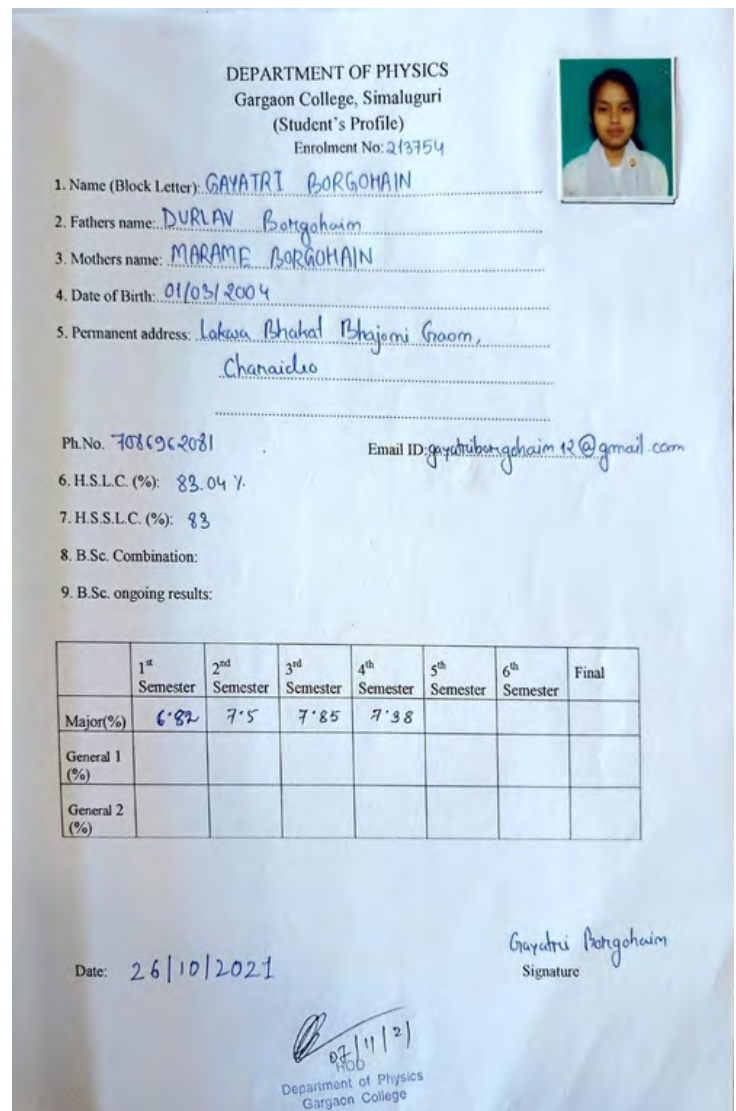 DEPARTMENT OF PHYSICS
Gargaon College, Simaluguri
(Student's Profile)
Enrolment No: 213754
1. Name (Block Letter): GAYATRI BORGOHAIN
2. Fathers name: DURLAV Borgohain
3. Mothers name: MARAME BORGOHAIN
4. Date of Birth: 01/03/2004
5. Permanent address: Lakwa Bhakat Bhajoni Gaon,
Charaideo
Ph.No. 7086962081 Email ID: gayatriborgohain12@gmail.com
6. H.S.L.C. (%): 83.04 %
7. H.S.S.L.C. (%): 83
8. B.Sc. Combination:
9. B.Sc. ongoing results:
1st Semester 2nd Semester 3rd Semester 4th Semester 5th Semester 6th Semester Final
Major(%) 6.82 7.5 7.85 7.38
General 1 (%)
General 2 (%)
Gayatri Borgohain
Date: 26/10/2021 Signature
07/11/21
HOD
Department of Physics
Gargaon College